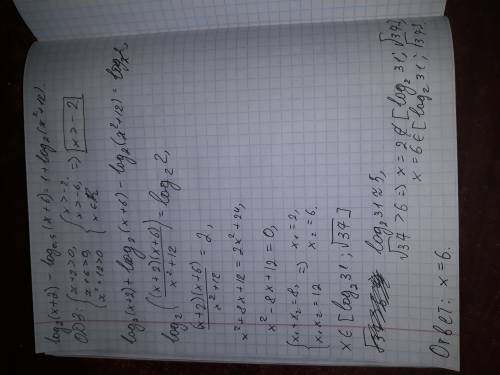 log₂(x+2) - log₀,₅(x+6) = 1 + log₂(x²+12).
ОДЗ: { x+2>0, x+6>0, x²+12>0 { x>-2, x>-6, x∈R. => x>-2
log₂(x+2) + log₂(x+6) - log₂(x²+12) = log₂2,
log₂((x+2)(x+6)/x²+12) = log₂2,
(x+2)(x+6)/x²+12 = 2,
x²+8x+12 = 2x²+24,
x²-8x+12 = 0,
{ x₁+x₂=8, x₁x₂=12 => x₁=2, x₂=6.
x∈[log₂31; √37]
log₂31≈5,
√37>6 => x=2∉[log₂31; √37]
x=6∈[log₂31; √37].
Ответ: x=6.